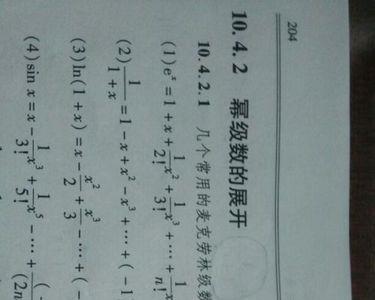 204
10.4.2 幂级数的展开
10.4.2.1 几个常用的麦克劳林级数
(1) e^x = 1 + x + \frac{1}{2!}x^2 + \frac{1}{3!}x^3 + ⋯ + \frac{1}{n!}x
(2) \frac{1}{1+x} = 1 - x + x^2 - x^3 + ⋯ + (-1
(3) ln(1+x) = x - \frac{x^2}{2} + \frac{x^3}{3} - ⋯ + (-
(4) sin x = x - \frac{1}{3!}x^3 + \frac{1}{5!}x^5 - ⋯ + \frac{(-}{(2n}